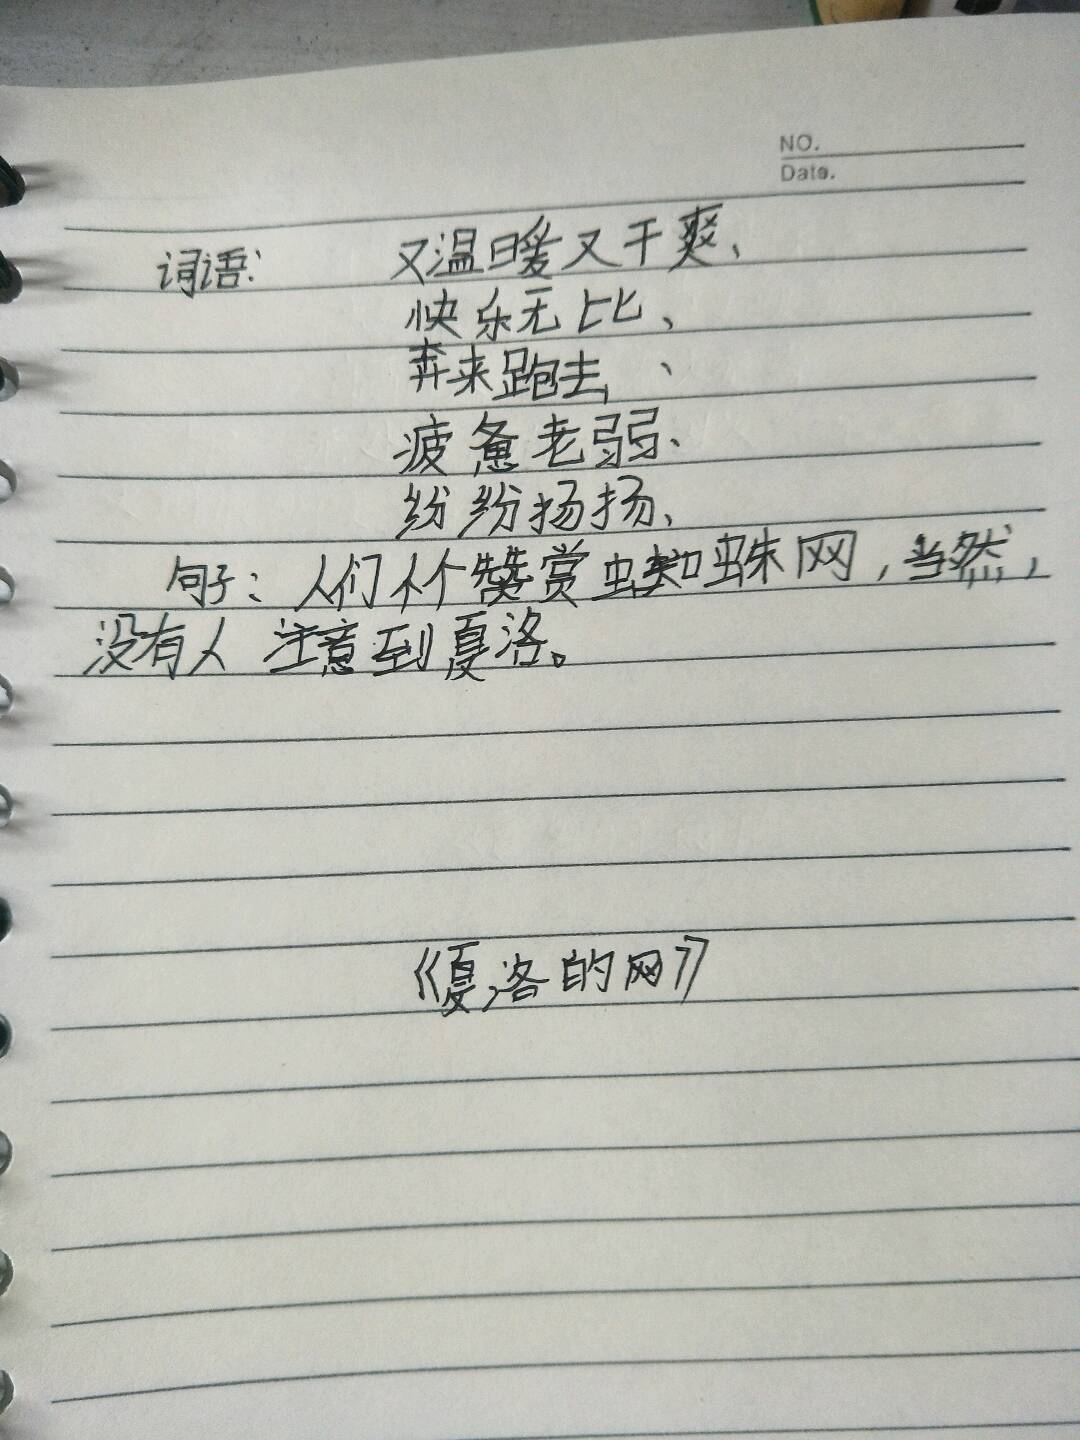 NO.
Date.
词语： 又温暖又干爽、
快乐无比、
奔来跑去、
疲惫老弱、
纷纷扬扬、
句子：人们个个赞赏蜘蛛网，当然，
没有人注意到夏洛。
《夏洛的网》